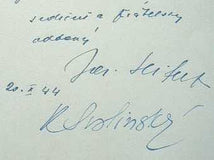 srdečně a přátelsky
oddaný
Jar. Seifert
20. X 44